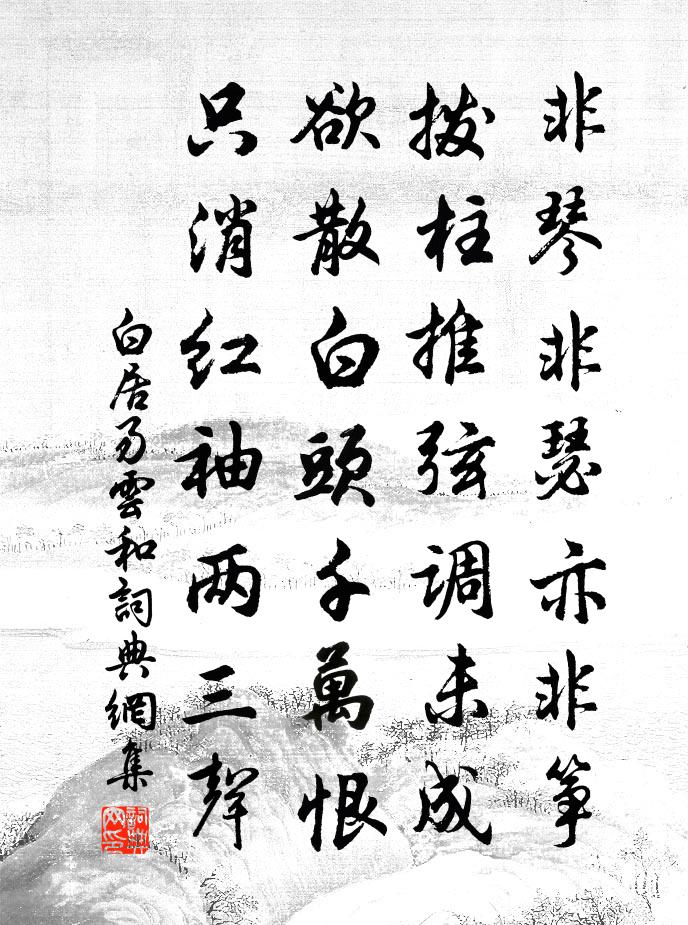 非琴非瑟亦非筝
拨柱推弦调未成
欲散白頭千萬恨
只消红袖两三聲
白居易雲和詞典網集
詞典網印